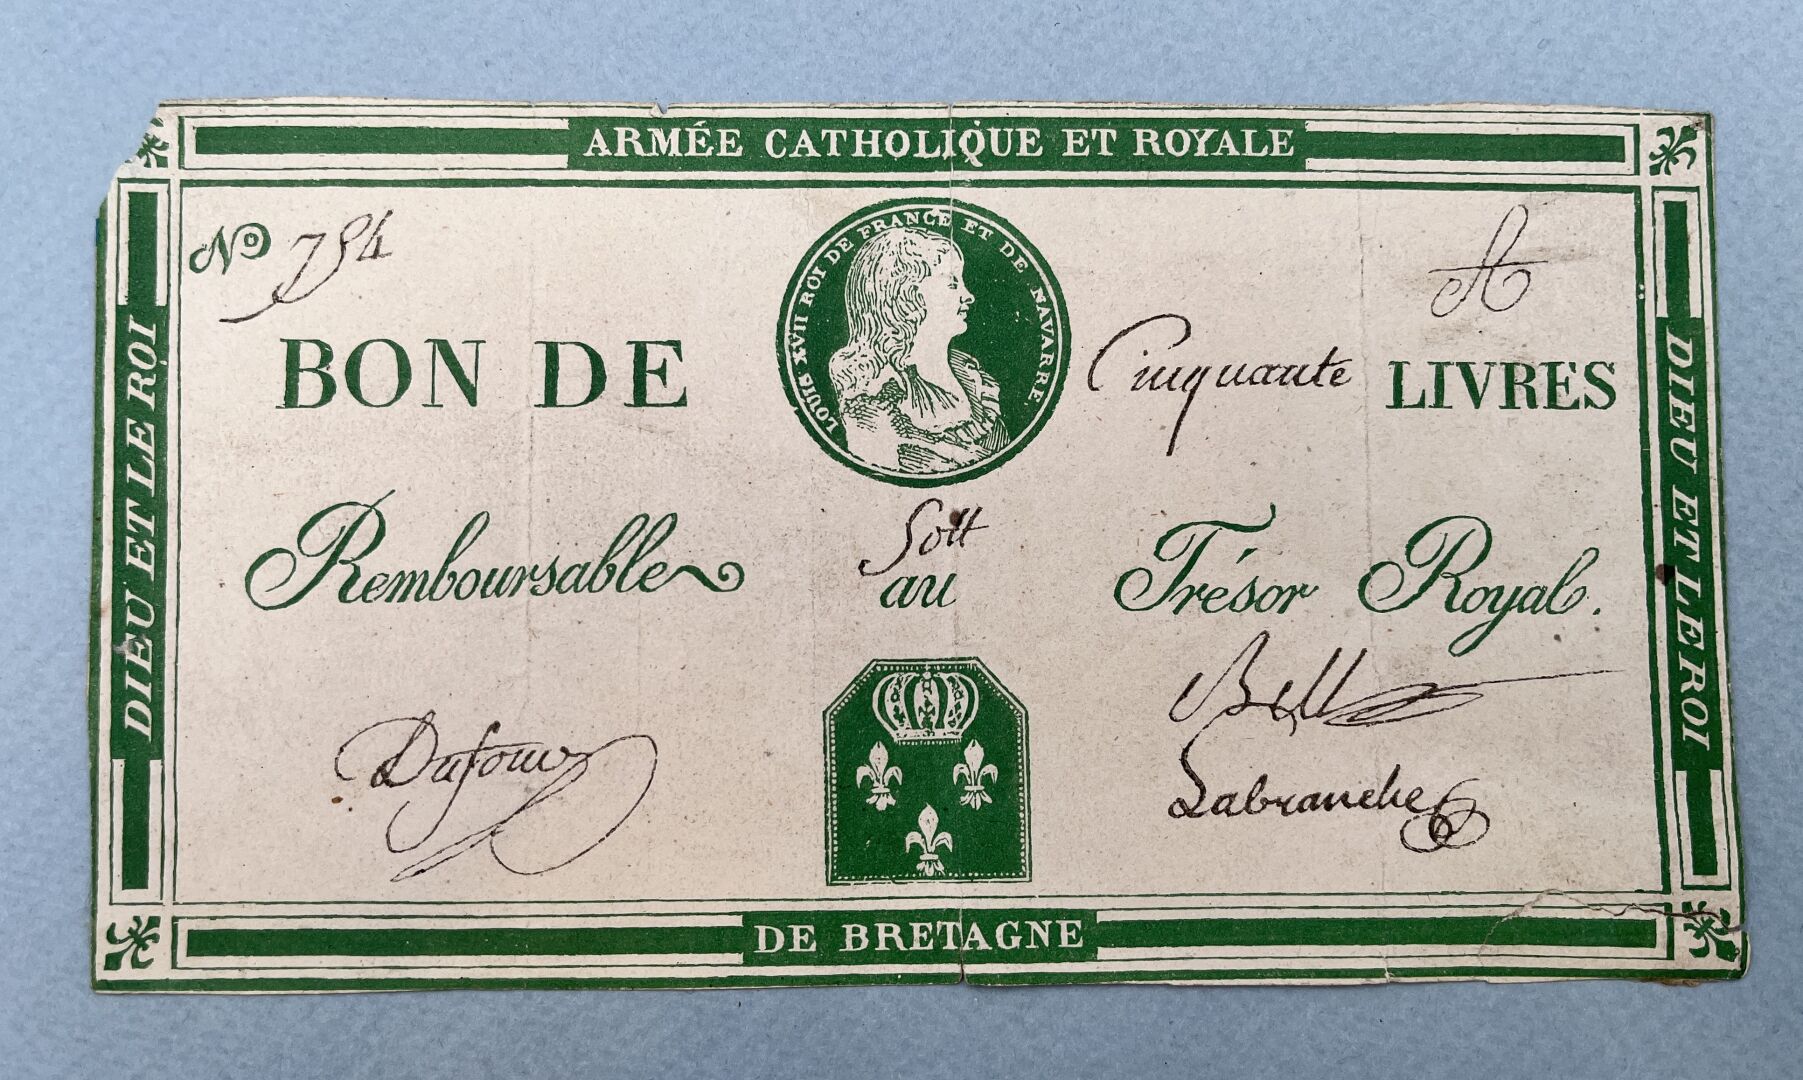 ARMÉE CATHOLIQUE ET ROYALE
No 754
A
LOUIS XVII ROI DE FRANCE ET DE NAVARRE.
BON DE Cinquante LIVRES
Remboursable au Trésor Royal.
Dufour
Labranche
DIEU ET LE ROI
DIEU ET LE ROI
DE BRETAGNE